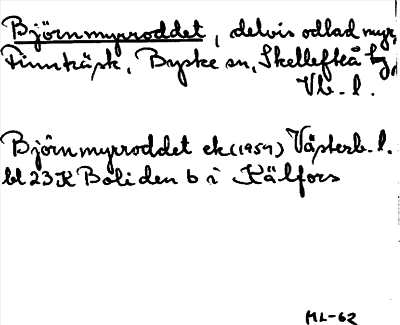 Björnmyrroddet, delvis odlad myr,
Finnträsk, Byske sn, Skellefteå tg,
Vb. l.
Björnmyrroddet ek (1959) Västerb. l.
bl 23K Boliden b i Källfors
ML-62